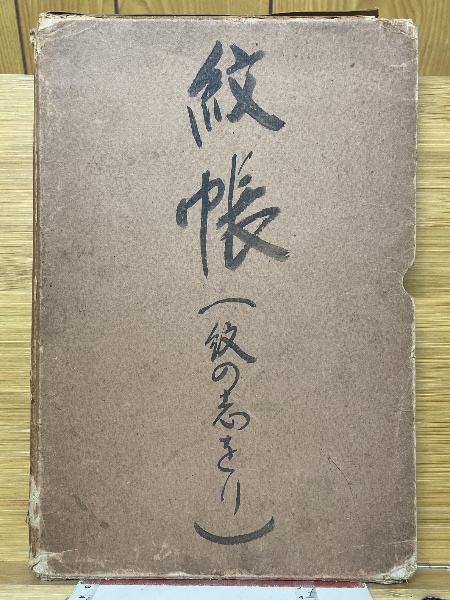 紋帳
（紋の志をり）